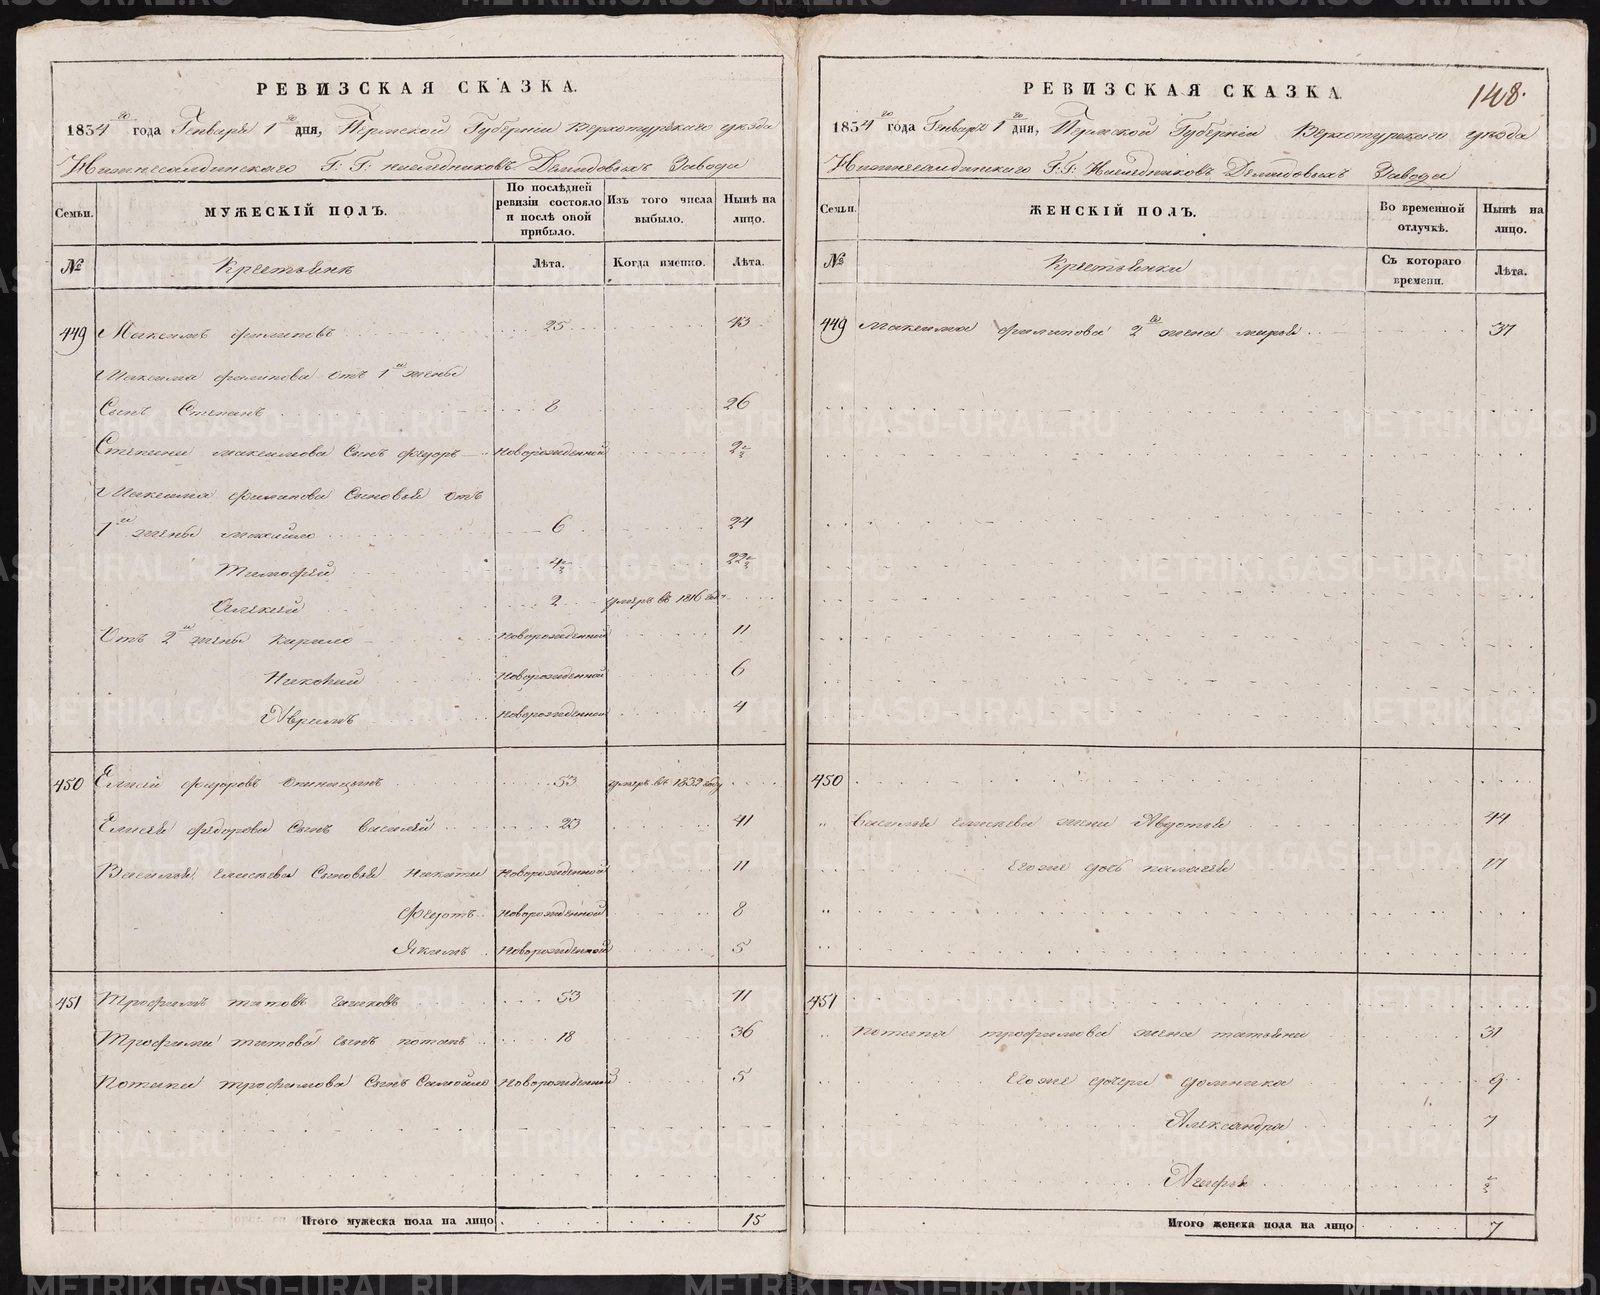 РЕВИЗСКАЯ СКАЗКА.
1834 го года Генваря 1 го дня, Пермской Губернии Верхотурскаго уезда
Нижнесалдинскаго Г: Г: наследниковъ Демидовыхъ Завода
Семьи.
МУЖЕСКІЙ ПОЛЪ.
По послѣдней ревизіи состояло и послѣ оной прибыло.
Изъ того числа выбыло.
Нынѣ на лицо.
№
Крестьянъ
Лѣта.
Когда именно.
Лѣта.
449 Максимъ Филиповъ 25 43
Максима Филипова отъ 1й жены
Сынъ Степанъ 8 26
Степана Максимова Сынъ Федоръ Новорожденной 2 1/2
Максима Филипова Сыновья отъ
1й жены Михайло 6 24
Тимофей 4 1/2 22 1/2
Алексей 2 умеръ въ 1816 году
Отъ 2й жены Кирило Новорожденной 11
Новорожденной 6
Абрамъ Новорожденной 4
450 Елисей Федоровъ 53 умеръ въ 1832 году
Елисея Федорова Сынъ Василей 23 41
Василья Елисеева Сыновья Никита Новорожденной 11
Федотъ Новорожденной 8
Якимъ Новорожденной 5
451 Трофимъ Титовъ 53 71
Трофима Титова Сынъ Потапъ 18 36
Потапа Трофимова Сынъ Самойло Новорожденной 5
Итого мужеска пола на лицо 15
148.
РЕВИЗСКАЯ СКАЗКА.
1834 го года Генваря 1 го дня, Пермской Губерніи Верхотурскаго уезда
Нижнесалдинскаго Г: Г: Наследниковъ Демидовыхъ Завода
Семьи.
ЖЕНСКІЙ ПОЛЪ.
Во временной отлучкѣ.
Нынѣ на лицо.
№
Крестьянки
Съ котораго времени.
Лѣта.
449 Максима Филипова 2я жена Марфа 37
450
Василья Елисеева жена Авдотья 44
Его же дочь Паладья 17
451
Потапа Трофимова жена Татьяна 31
Его же дочери Домника 9
Александра 7
Агафья 1/2
Итого женска пола на лицо 7
METRIKI.GASO-URAL.RU